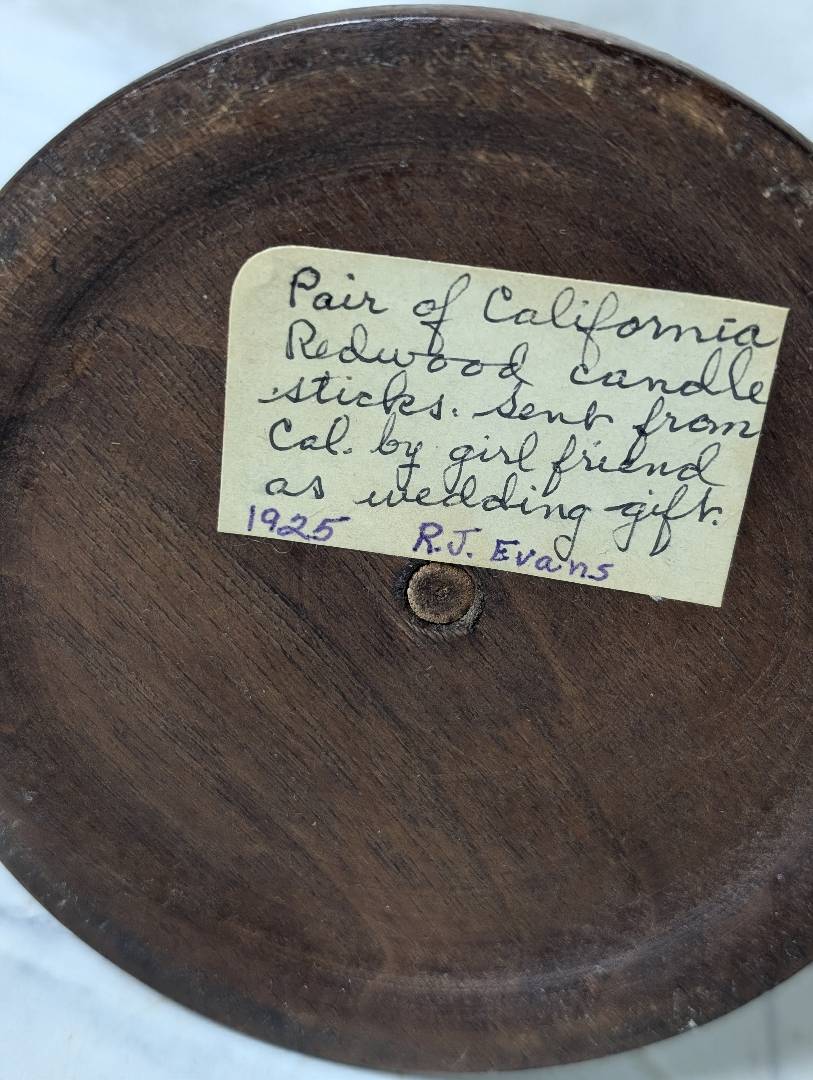 Pair of California
Redwood candle
sticks. Sent from
Cal. by girl friend
as wedding gift.
1925 R.J. Evans